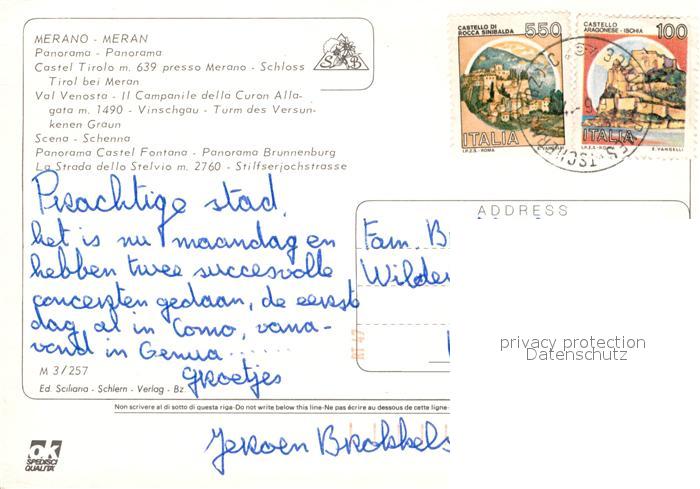 MERANO - MERAN
Panorama - Panorama
Castel Tirolo m. 639 presso Merano - Schloss
Tirol bei Meran
Val Venosta - Il Campanile della Curon Alla-
gata m. 1490 - Vinschgau - Turm des Versun-
kenen Graun
Scena - Schenna
Panorama Castel Fontana - Panorama Brunnenburg
La Strada dello Stelvio m. 2760 - Stilfserjochstrasse
CASTELLO DI
ROCCA SINIBALDA
550
ITALIA
I.P.Z.S. - ROMA
CASTELLO
ARAGONESE - ISCHIA
100
ITALIA
E. VANGELLI
Prachtige stad,
het is nu maandag en
hebben twee succesvolle
concerten gedaan, de eerste
dag al in Como, vana-
vond in Genua......
groetjes
Jeroen Brokkels
ADDRESS
Fam. B
Wilder
privacy protection
Datenschutz
M 3/257
Ed. Sciliana - Schlern - Verlag - Bz
Non scrivere al di sotto di questa riga-Do not write below this line-Ne pas écrire au dessous de cette ligne-
ak
SPEDISCI
QUALITÀ